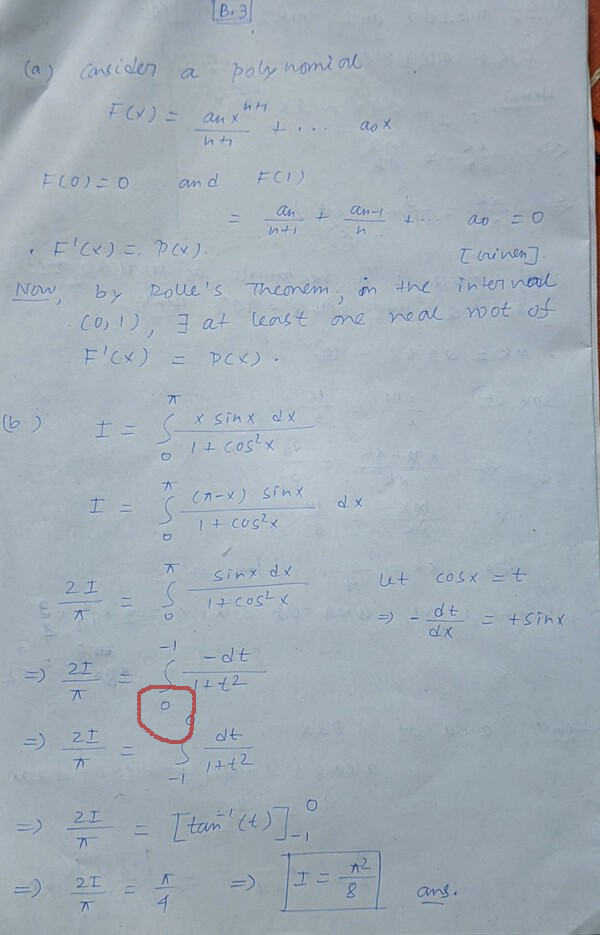 B.3
(a) Consider a polynomial
F(x) = aₙxⁿ⁺¹/n+1 + ... a₀x
F(0) = 0 and F(1)
= aₙ/n+1 + aₙ₋₁/n + ... a₀ = 0
. F'(x) = P(x). [Given].
Now, by Rolle's Theorem, in the interval
(0,1), ∃ at least one real root of
F'(x) = P(x).
(b) I = ∫₀^π x sinx dx / 1 + cos²x
I = ∫₀^π (π-x) sinx / 1 + cos²x dx
2I/π = ∫₀^π sinx dx / 1 + cos²x let cosx = t
⇒ -dt/dx = + sinx
⇒ 2I/π = ∫₀^-1 -dt / 1+t²
⇒ 2I/π = ∫₋₁^0 dt / 1+t²
⇒ 2I/π = [tan⁻¹(t)]₋₁^0
⇒ 2I/π = π/4 ⇒ I = π²/8 ans.